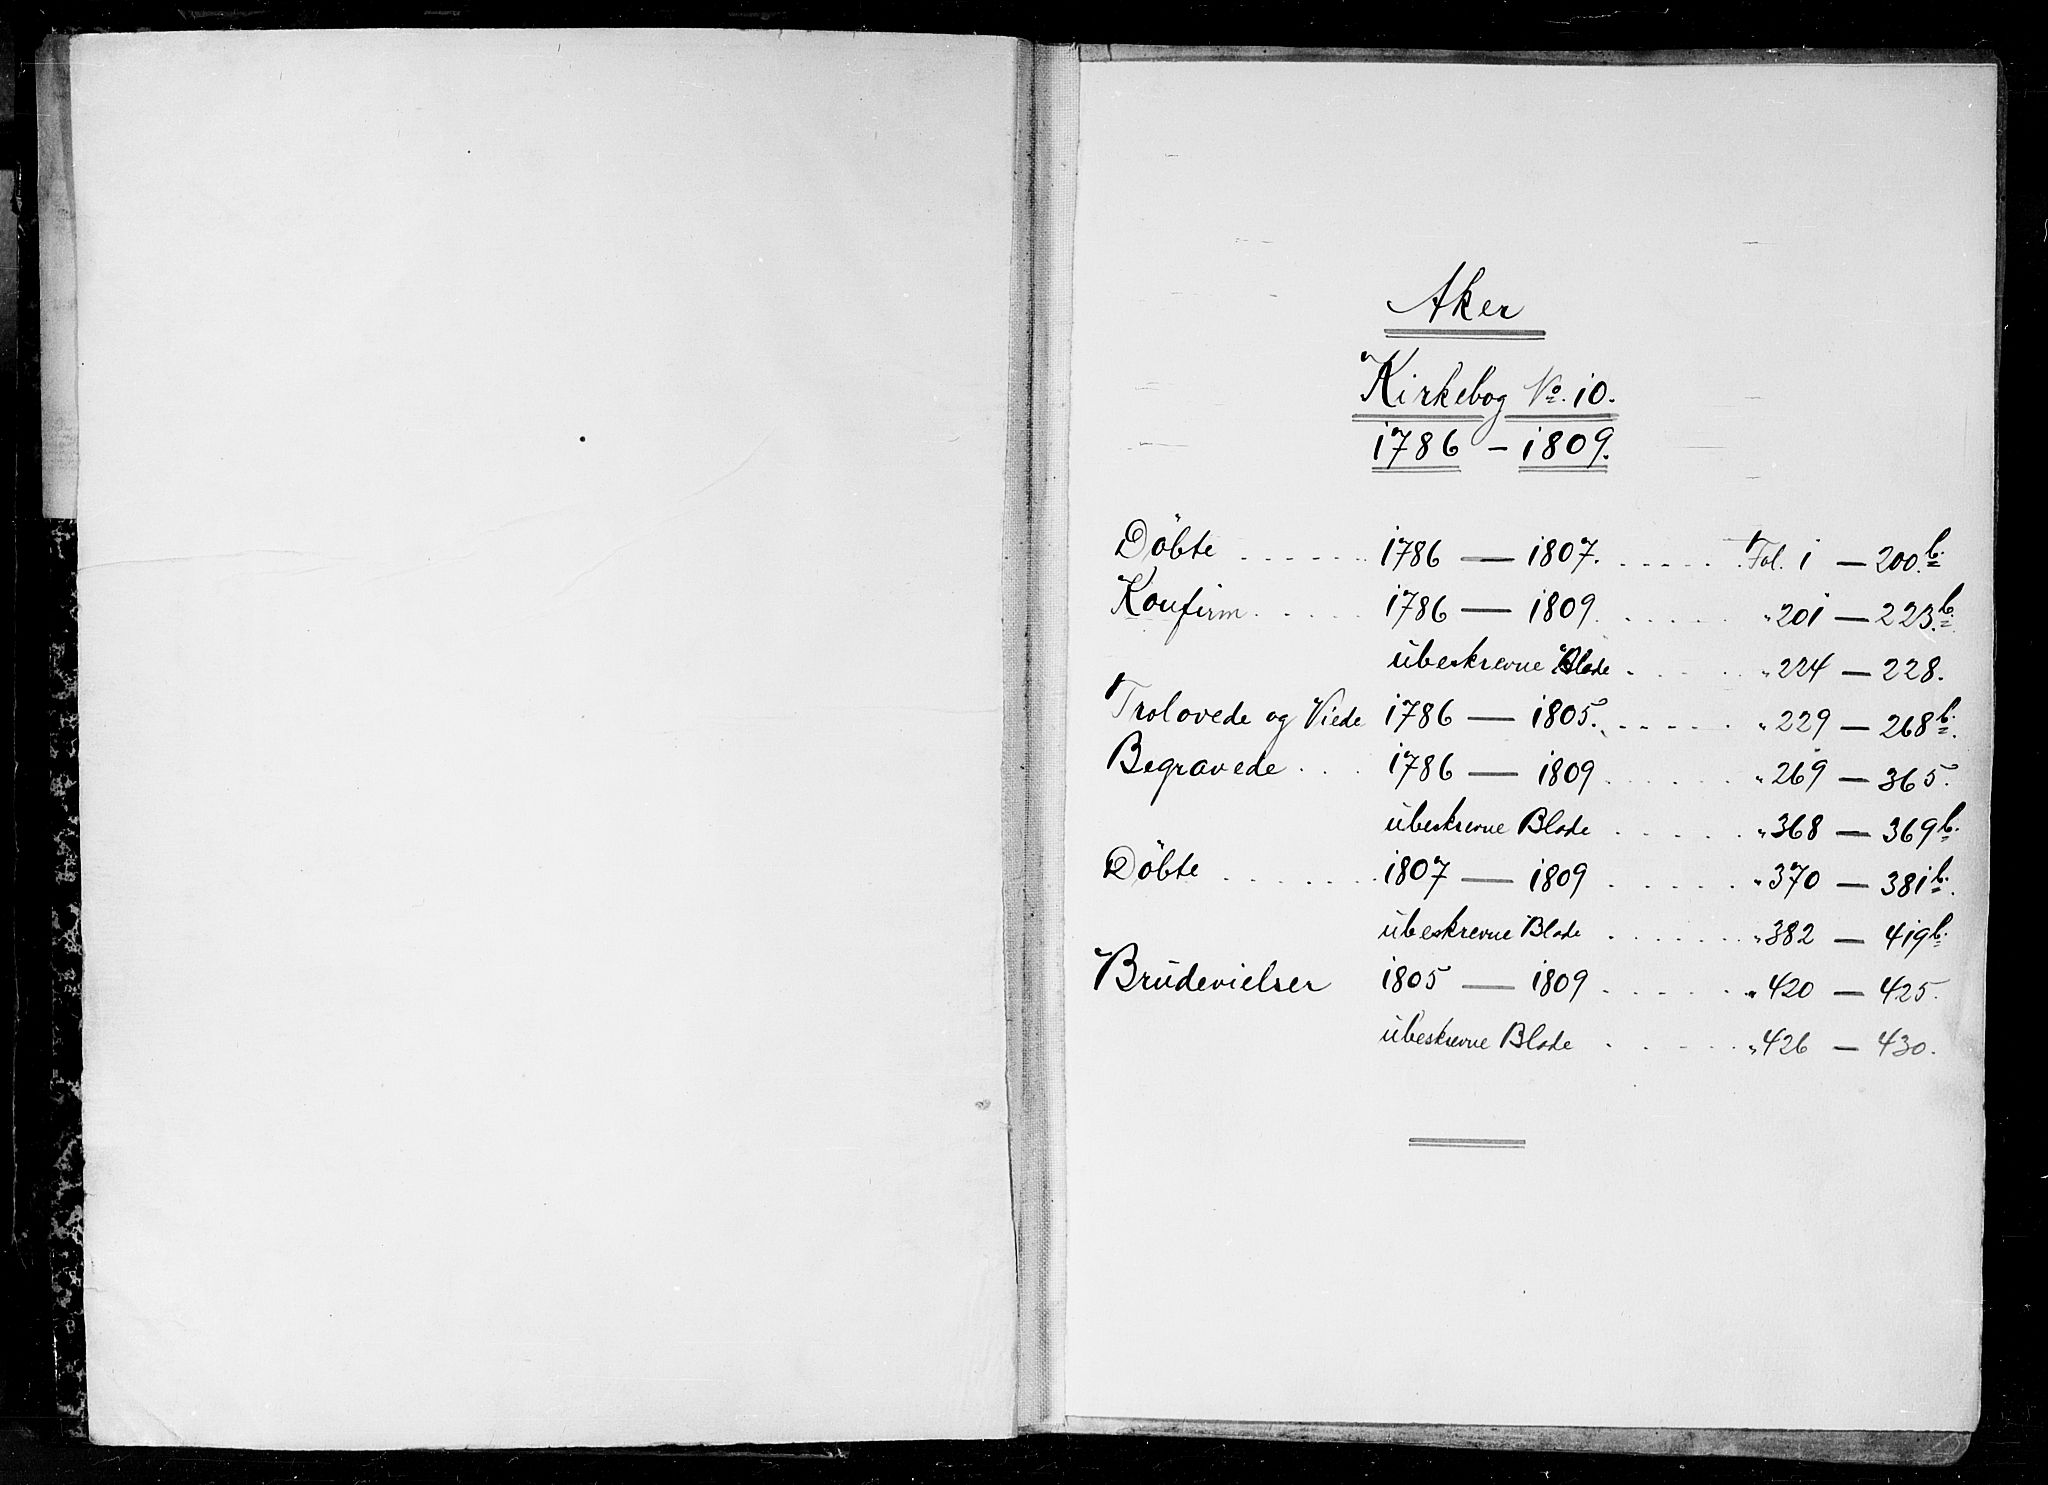 Aker
Kirkebog No. 10.
1786 – 1809.
Döbte ...... 1786 — 1807. ..... Fol. 1 — 200.b.
Konfirm. ..... 1786 — 1809. ..... " 201 — 223.b.
übeskrevne Blade. .... " 224 — 228.
Trolovede og Viede 1786 — 1805. ..... " 229 — 268b.
Begravede ... 1786 — 1809 ...... " 269 — 365.
übeskrevne Blade ..... " 368 — 369b.
Döbte ....... 1807 — 1809 ..... " 370 — 381b.
übeskrevne Blade ..... " 382 — 419b.
Brüdevielser 1805 — 1809 ..... " 420 — 425.
übeskrevne Blade .... " 426 — 430.